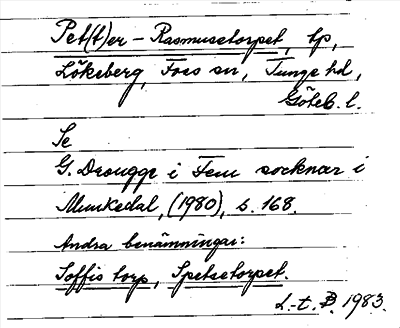 Pet(t)er-Rasmusetorpet, tp,
Lökeberg, Foss sn, Tunge hd,
Göteb. l.
Se
G. Drougge i Fem socknar i
Munkedal, (1980), s. 168.
Andra benämningar:
Soffis torp, Spetsetorpet.
L-t. B. 1983.